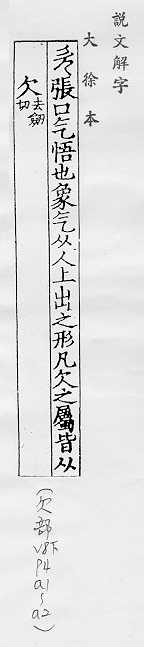 說文解字
大徐本
欠張口气悟也象气从人上出之形凡欠之屬皆从
欠去劒切
(欠部 V8下 P4 a1~a2)